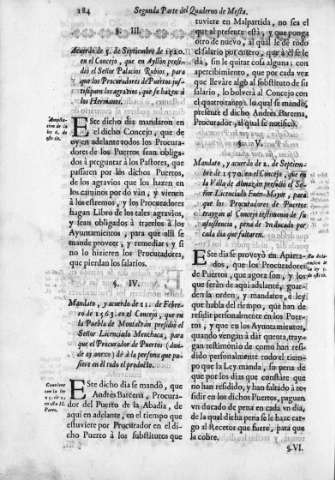 284 Segunda Parte del Quaderno de Mesta,
§. III.
Acuerdo de 5. de Septiembre de 1520.
en el Concejo, que en Ayllón presidió
el Señor Palacios Rubios, para
que los Procuradores de Puertos
de los agravios, que se hazen à
los Hermanos.
Este dicho dia mandaron en
el dicho Concejo, que de
oy en adelante todos los Procuradores
de los Puertos sean obligados
à preguntar à los Pastores, que
passaren por los dichos Puertos,
de los agravios, que los hazen en
los caminos por dò van, y vienen
à los estremos, y los Procuradores
hagan Libro de los tales agravios,
y sean obligados à traerlos à los
Ayuntamientos, para que alli se
mande proveer, y remediar; y si
no lo hizieren los Procuradores,
que pierdan los salarios.
§. IV.
Mandato, y acuerdo de 21. de Febrero
de 1563. en el Concejo, que en
la Puebla de Montalván presidió el
Señor Licenciado Menchaca, para
que el Procurador de Puerto
de ay anexo) dé à la persona que
en él todo el producto.
Este dicho dia se mandò, que
Andrés Barcena, Procurador
del Puerto de la Abadia, de
aqui en adelante, en el tiempo que
estuviere por Procurador en el dicho
Puerto à los substitutos que
tuviere en Malpartida, no sea el
que al presente està, y que ponga
otro de nuevo, al qual se le dè todo
el salario por entero, que à èl se le
dà, sin le quitar cosa alguna: con
apercibimiento, que por cada vez
que llevàre algo al substituto de
su salario, lo bolverà al Concejo
con el quatrotanto. lo qual se mandò,
presente el dicho Andrés Barcena,
Procurador, al qual se notificò.
§. V.
Mandato, y acuerdo de 2. de Septiembre
de 1570. en el Concejo, que en
la Villa de presidió el Señor
Licenciado para
que los Procuradores de Puertos
traygan al Concejo testimonio de su
assistencia, pena de un ducado por
cada dia que faltaren.
Este dia se proveyò en Apartados,
que los Procuradores
de Puertos, que agora son, y los
que seràn de aqui adelante, guarden
la orden, y mandatos, è ley
que habla del tiempo, que han de
residir personalmente en los Puertos,
y que en los Ayuntamientos,
quando vengan à dar quenta, traygan
testimonio de como han residido
personalmente todo el tiempo
que la Ley manda, so pena de
que por los dias que constàre que
no han residido, y han saltado à residir
en los dichos Puertos, paguen
un ducado de pena en cada un
dia, de la qual dicha pena se haga cargo
al Receptor que fuere, para que
la cobre.
§. VI.